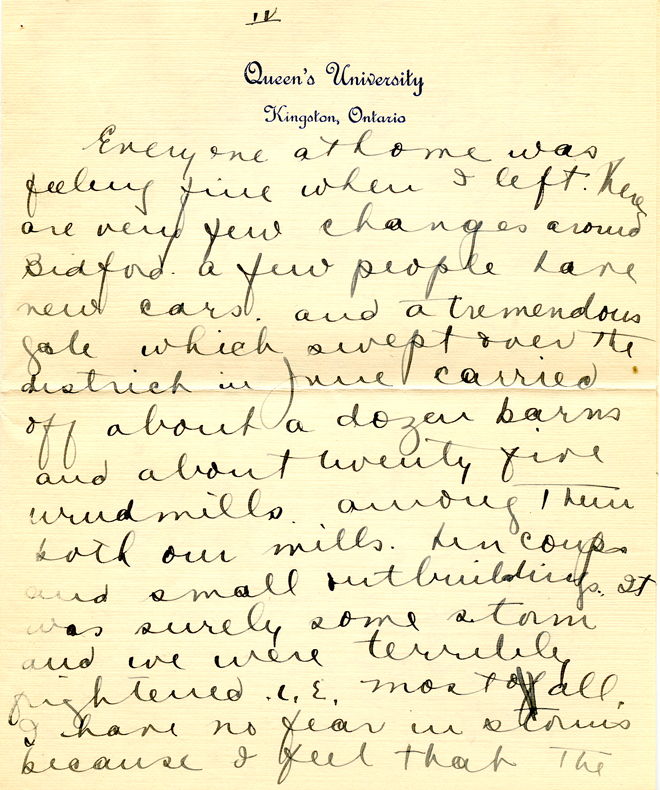 IV
Queen's University
Kingston, Ontario
Everyone at home was
feeling fine when I left. There
are very few changes around
Bidford. a few people have
new cars. and a tremendous
gale which swept over the
districh in June carried
off about a dozen barns
and about twenty five
windmills. among them
both our mills. hen coups
and small outbuildings. It
was surely some storm
and we were terribly
frightened. i.e. most of all.
I have no fear in storms
because I feel that the